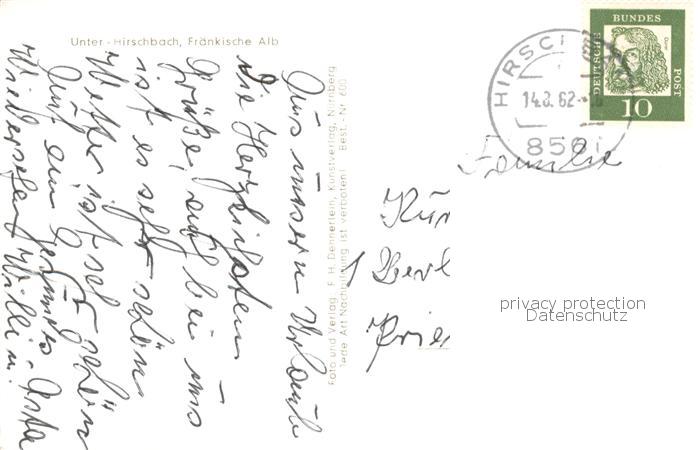 Unter-Hirschbach, Fränkische Alb
Aus unserm Urlaub
die Herzlichsten
Grüße, auch bei uns
ist es sehr schön
Wetter ist sehr schön
Auf ein Gesundes
Wiedersehen Willi u. Asta
Foto und Verlag F. H. Dennerlein, Kunstverlag, Nürnberg
Jede Art Nachbildung ist verboten! Best.-Nr. 600
HIRSC
14.8.62
DEUTSCHE
BUNDES
POST
Dürer
10
Familie
Kur
Berl
Frie
privacy protection
Datenschutz